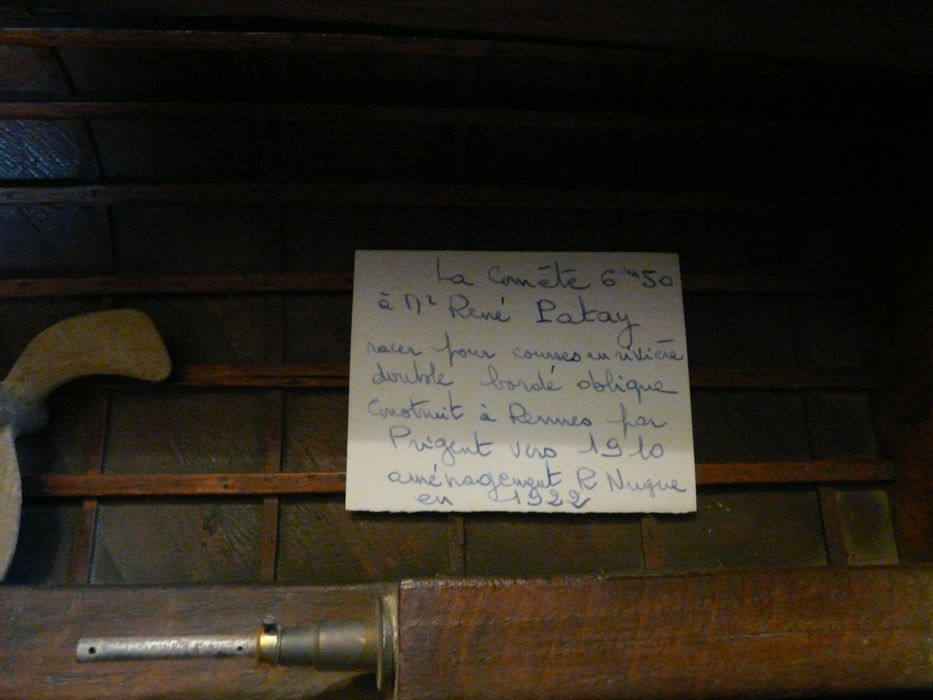 La Comète 6 m 50
à Mr René Patay
racer pour courses en rivière
double bordé oblique
Construit à Rennes par
Prigent vers 1910
aménagement R Nugue
en 1922